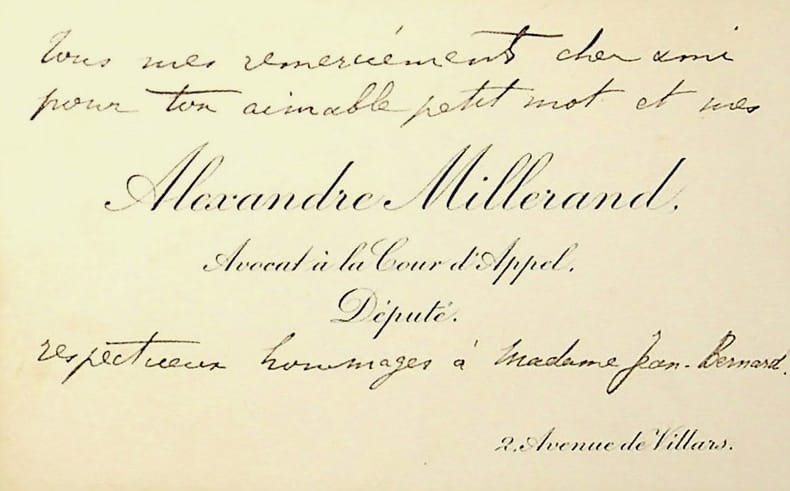 Tous mes remerciements cher ami
pour ton aimable petit mot et mes
Alexandre Millerand.
Avocat à la Cour d'Appel.
Député.
respectueux hommages à Madame Jean-Bernard.
2, Avenue de Villars.